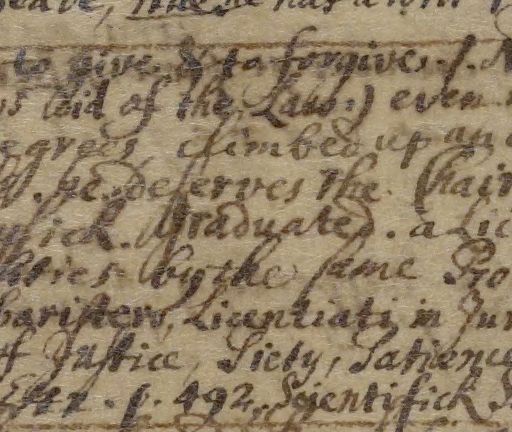 to give, & to forgives. /. N
s laid of the Law:) even
egrees, climbed up an
he deserves the Chair
sick. Graduated. a Lic
by the same Pro
baristers, Licentiati in Jur
of Justice, Piety, Patienc
p. 492. Scientifick